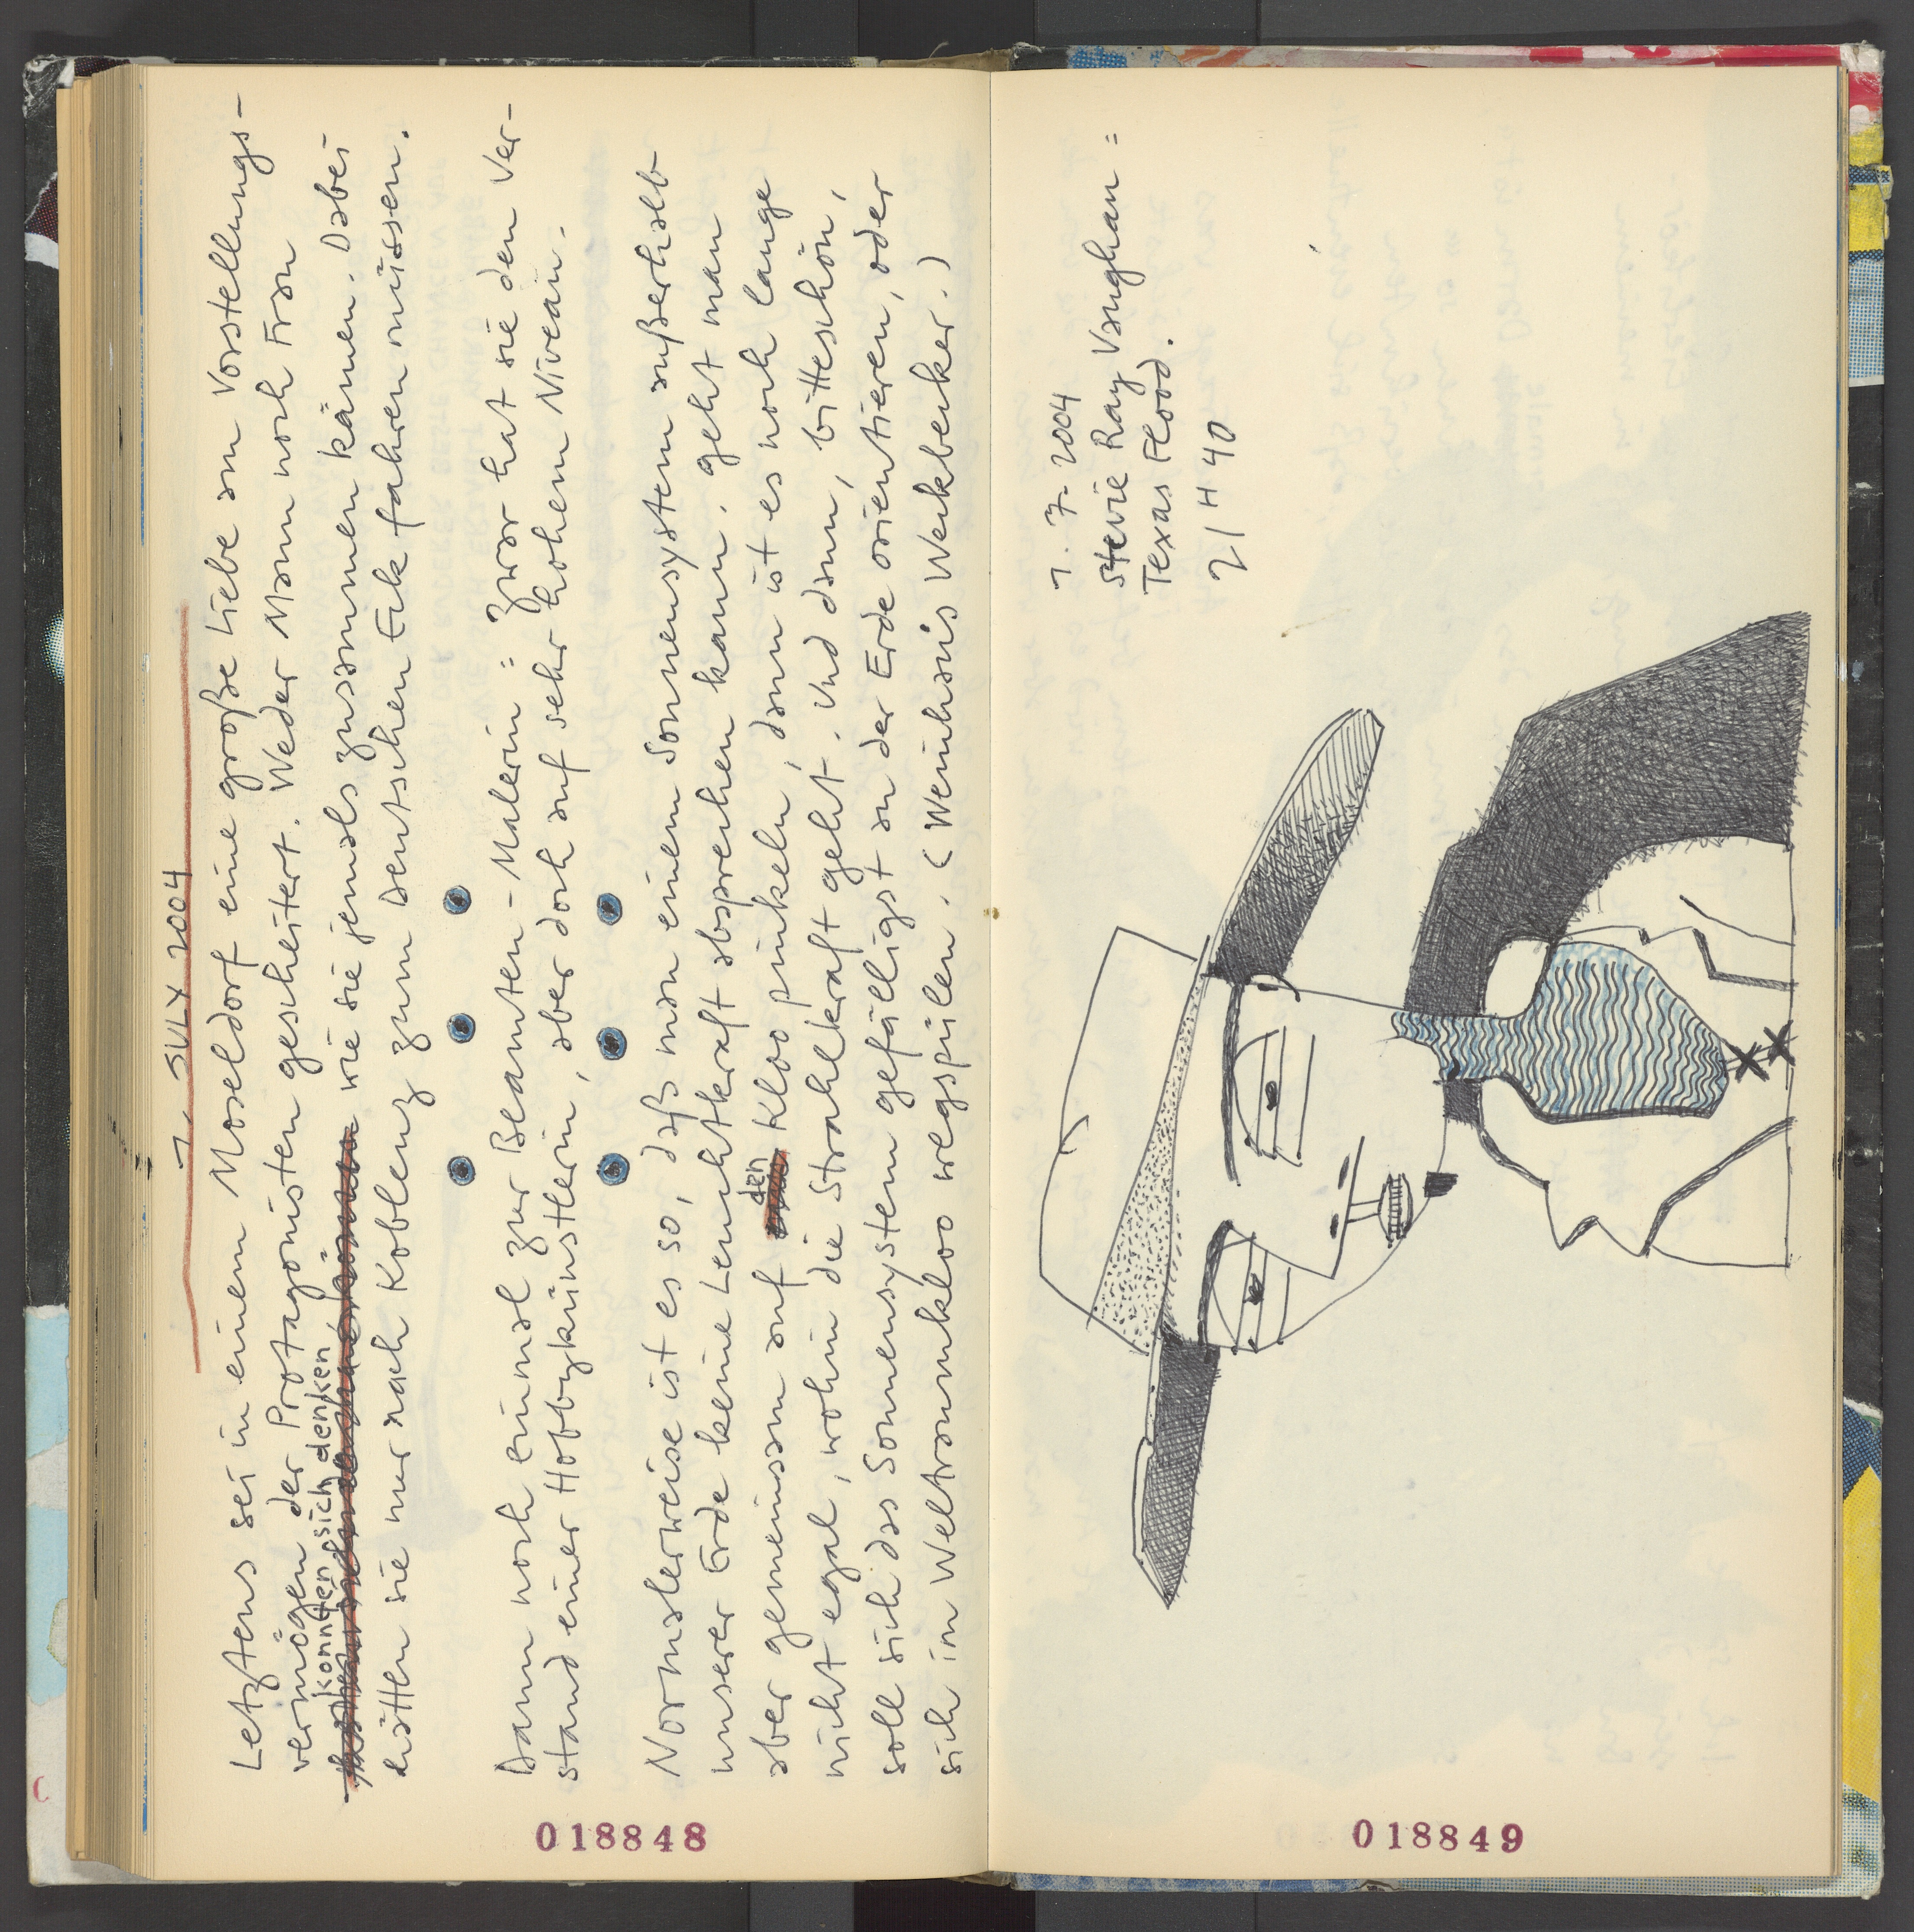 1. JULY 2004
Letztens sei in einem Moseldorf eine große Liebe am Vorstellungs-
vermögen der Protagonisten gescheitert. Weder Mann noch Frau
konnten sich denken
wie sie jemals zusammen kämen. Dabei
hätten sie nur nach Koblenz zum Deutschen Eck fahren müssen.
Dann noch einmal zur Beamten-Malerin: zwar hat sie den Ver-
stand einer Hobbykünstlerin, aber doch auf sehr hohem Niveau.
Normalerweise ist es so, daß man einem Sonnensystem außerhalb
unserer Erde keine Leuchtkraft absprechen kann. geht man
aber gemeinsam auf den Kloo pinkeln, dann ist es noch lange
nicht egal, wohin die Strahlkraft geht. Und dann, bitteschön,
soll sich das Sonnensystem gefälligst an der Erde orientieren, oder
sich im Weltraumkloo wegspülen. (Weinhaus Weckbecker.)
018848
1. 7. 2004
Stevie Ray Vaughan:
Texas Flood.
21 H 40
018849